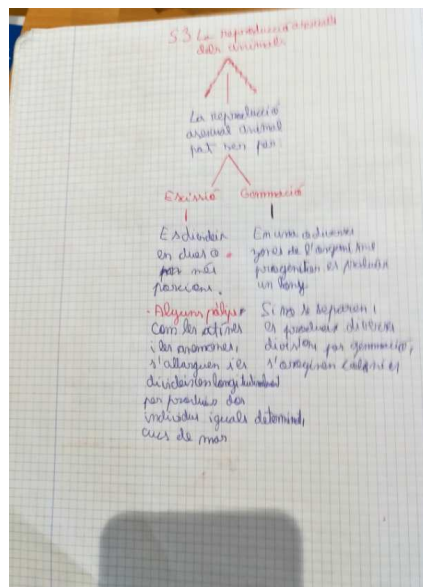 5.3 La reproducció asexual
dels animals
La reproducció
asexual animal
pot ser per:
Escissió
Es divideix
en dues o
per més
porcions.
· Alguns pòlips
Com les actínies
i les anemones,
s'allarguen i es
divideixen longitudinalment
per produir dos
individus iguals determinats
cucs de mar
Gemmació
En una o diverses
zones de l'organisme
progenitor es produeix
un bony.
Si no se separen i
es produeix diverses
divisions per gemmació,
s'originen colònies